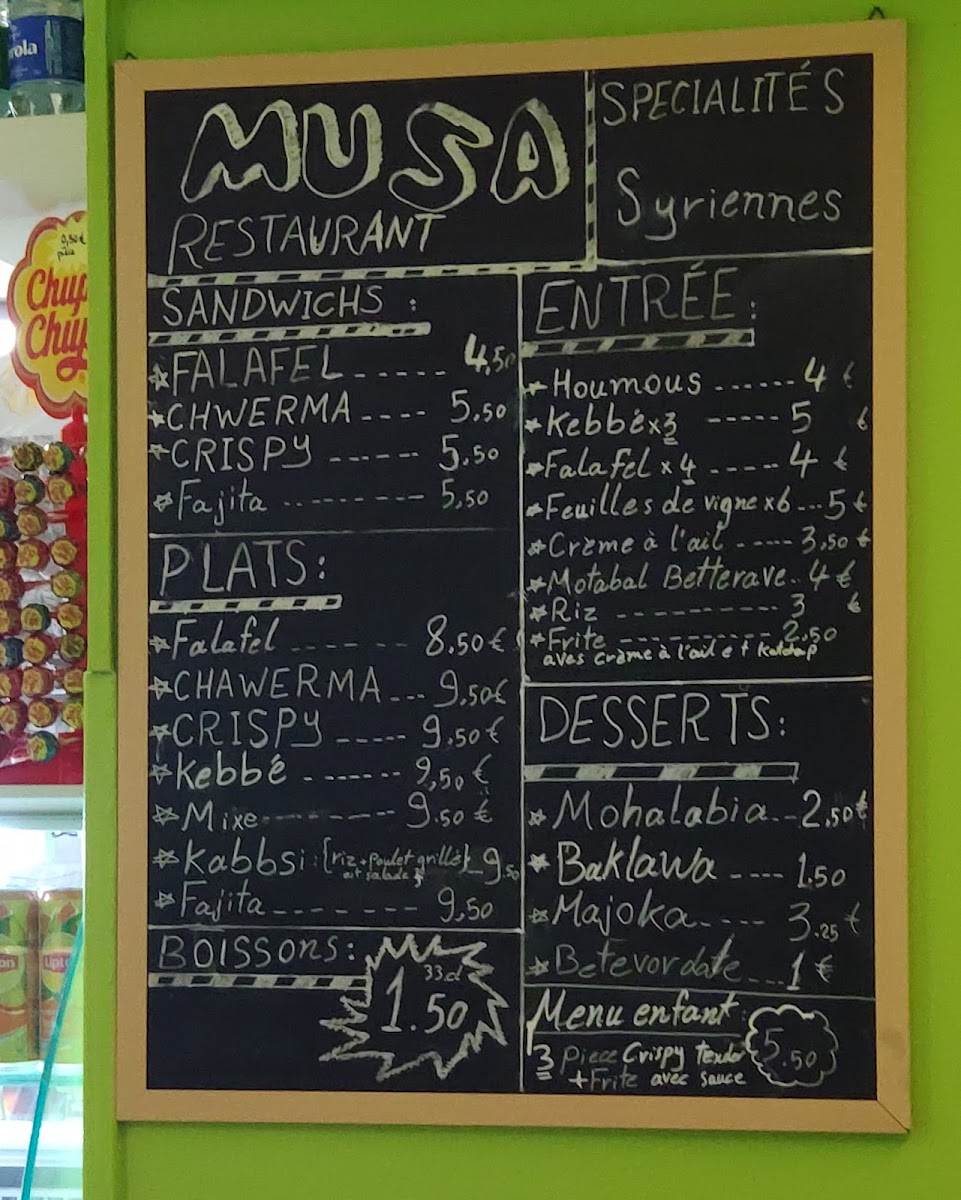 MUSA
RESTAURANT
SPECIALITÉS
Syriennes
SANDWICHS :
FALAFEL ------ 4,50
CHWERMA ---- 5.50
CRISPY ------ 5.50
Fajita -------- 5,50
PLATS :
Falafel ---- -- 8.50€
CHAWERMA --- 9.50€
CRISPY ----- 9.50€
Kebbé ------- 9,50€
Mixe -------- 9.50€
Kabbsi : {riz + Poulet grillé} - 9.50
et salade
Fajita ------- 9,50
BOISSONS :
33cl
1.50
ENTRÉE :
Houmous ------ 4 €
Kebbé x3 ----- 5 €
Falafel x 4 ----- 4 €
Feuilles de vigne x6 --- 5 €
Crème à l'ail ----- 3,50 €
Motabal Betterave -- 4 €
Riz ---------- 3 €
Frite ---------- 2.50
aves crème à l'ail et
DESSERTS :
Mohalabia --- 2.50€
Baklawa ---- 1.50
Majoka ---- 3.25 €
Betevordate --- 1 €
Menu enfant :
3 Piece Crispy Tender
+ Frite avec sauce
5.50
0,50€
pièce
Chup
Chup
rola
Lipton